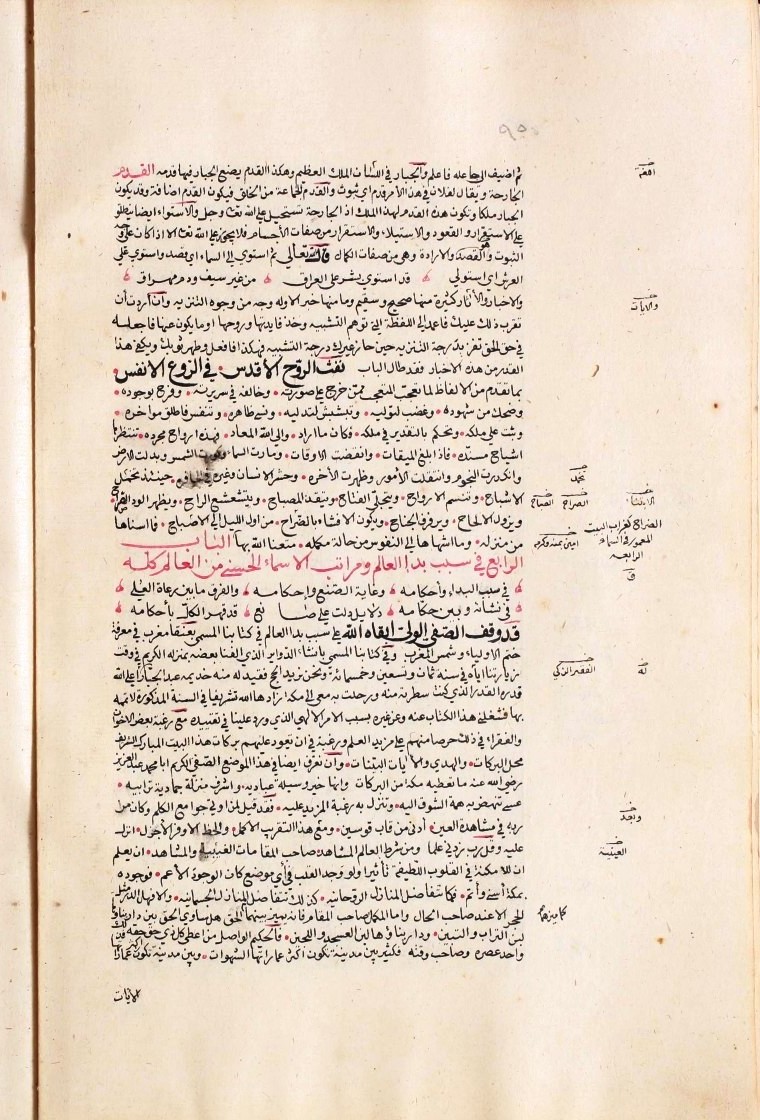 ثم اضيف الى جاعله فاعلم والجبار في اللسان الملك العظيم وهكذا القدم يضع الجبار فيها قدمه القدم
الجارحة ويقال لفلان في هذا الأمر قدم اي ثبوت والقدم جماعة من الخلق فيكون القدم اضافة وقد يكون
الجبار ملكا وتكون هذه القدم لهذا الملك اذ الجارحة تستحيل على الله تعالى وجل والاستواء ايضا ينطلق
على الاستقرار والقعود والاستيلاء والاستقرار من صفات الأجسام فلا يجوز على الله تعالى الا اذا كان على وجه
الثبوت والقصد والارادة وهي من صفات الكمال قال تعالى ثم استوى الى السماء اي قصد واستوى على
العرش اي استولى
قد استوى بشر على العراق من غير سيف ودم مهراق
والاخبار والأثار كثيرة منها صحيح وسقيم وما منها خبر الا وله وجه من وجوه التنزيه وان اردت ان
تقرب ذلك عليك فاعمد الى اللفظة التي توهم التشبيه وخذ فايدتها وروحها او ما يكون عنها فاجعله
في حق الحق تفز بدرجة التنزيه حين حاز غيرك درجة التشبيه فهكذا فافعل وطهر ثوبك ويكفي هذا
القدر من هذه الاخبار فقد طال الباب نفث الروح الأقدس في الروع الأنفس
بما تقدم من الالفاظ لما تعجب المتعجب ممن خرج على صورته وخالفه في سريرته ففرح بوجوده
وضحك من شهوده وغضب لتوليه وتبشبش لتدليه ونسي ظاهره وتنفس فاطلق مواخره
وثبت على ملكه وتحكم بالتقدير في ملكه فكان ما اراد والى الله المعاد فهذه ارواح مجرده تنتظرها
اشباح مسنده فاذا بلغ الميقات وانقضت الاوقات ومارت السماء وكورت الشمس وبدلت الارض
وانكدرت النجوم وانتقلت الأمور وظهرت الأخره وحشر الانسان وغيره في الحافره حينئذ تحمد
الاشباح وتتنسم الارواح ويتجلى الفتاح ويتقد المصباح ويتشعشع الراح ويظهر الود الصراح
ويزول الالحاح ويرفرف الجناح ويكون الافشاء بالضراح من اول الليل الى الاصباح فما اسناها
من منزله وما اشهاها الى النفوس من حالة مكمله متعنا الله بها الباب
الرابع في سبب بدا العالم ومراتب الاسماء الحسنى من العالم كله
في سبب البداء واحكامه وغاية الصنع واحكامه والفرق ما بين رعاة العلى
في نشأة وبين حكامه دلايل دلت على صانع قد قهر الكل باحكامه
قد وقف الصفي الولي ابقاه الله على سبب بدا العالم في كتابنا المسمى بعنقا مغرب في معرفة
ختم الاولياء وشمس المغرب وفي كتابنا المسمى بانشاء الدواير الذي الفنا بعضه بمنزله الكريم في وقت
زيارتنا اياه في سنة ثمان وتسعين وخمسمائة ونحن نريد الحج فقيد له منه خديمه عبد الجبار اعلى الله
قدره القدر الذي كنت سطرته منه ورحلت به معي الى مكة زادها الله تشريفا في السنة المذكورة لاتمه
بها فشغلني هذا الكتاب عنه وعن غيره بسبب الامر الالهي الذي ورد علينا في تقييده مع رغبة بعض الاخوان
والفقراء في ذلك حرصا منهم على مزيد العلم ورغبة في ان تعود عليهم بركات هذا البيت المبارك الشريف
محل البركات والهدى والأيات البينات وان نعرف ايضا في هذا الموضع الصفي الكريم ابا محمد عبد العزيز
رضي الله عنه ما تعطيه مكة من البركات وانها خير وسيلة عباديه واشرف منزلة جمادية ترابيه
عسى تنهض به همة الشوق اليه وتنزل به رغبة المزيد عليه فقد قيل لمن اوتي جوامع الكلم وكان من
ربه في مشاهدة العين ادنى من قاب قوسين ومع هذا التقريب الاكمل والحظ الاوفر الأجزل انزل
عليه وقل رب زدني علما ومن شرط العالم المشاهد صاحب المقامات الغيبية والمشاهد ان يعلم
ان للامكنة في القلوب اللطيفة تأثيرا ولو وجد القلب في اي موضع كان الوجود الأعم فوجوده
بمكة أسنى وأتم فكما تتفاضل المنازل الروحانيه كذلك تتفاضل المنازل الجسمانيه والافهل الدر مثل
الحجر الا عند صاحب الحال واما المكمل صاحب المقام فانه يميز بينهما الحق هل ساوى الحق بين دار بناؤها
لبن التراب والتبن ودار بناؤها لبن العسجد واللجين فالحكيم الواصل من اعطى كل ذي حق حقه فذلك
واحد عصره وصاحب وقته فكثير بين مدينة تكون اكثر عماراتها الشهوات وبين مدينة تكون
الايات
والايات
الصراح
الضراح كغراب البيت
المعمور في السماء
الرابعه
ق
له
الفقير الذكي
وبعد
الغيبية
كما ميزهما